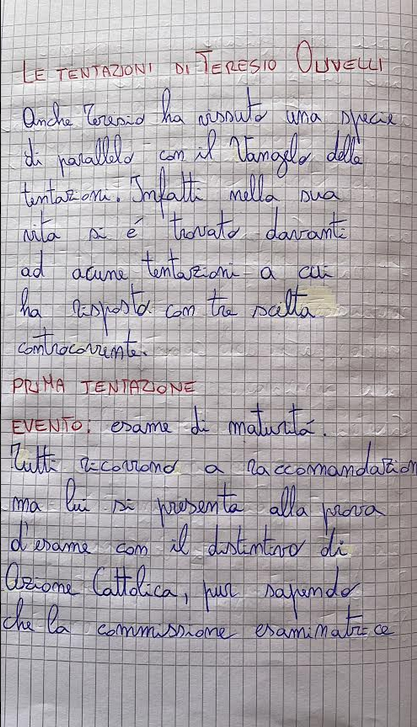 LE TENTAZIONI DI TERESIO OLIVELLI
Anche Teresio ha vissuto una specie
di parallelo con il Vangelo delle
tentazioni. Infatti nella sua
vita si é trovato davanti
ad acune tentazioni a cui
ha risposto con tre scelta
controcorrente.
PRIMA TENTAZIONE
EVENTO: esame di maturitá.
Tutti ricorrono a raccomandazion
ma lui si presenta alla prova
d'esame con il distintivo di
Azione Cattolica, pur sapendo
che la commissione esaminatrice